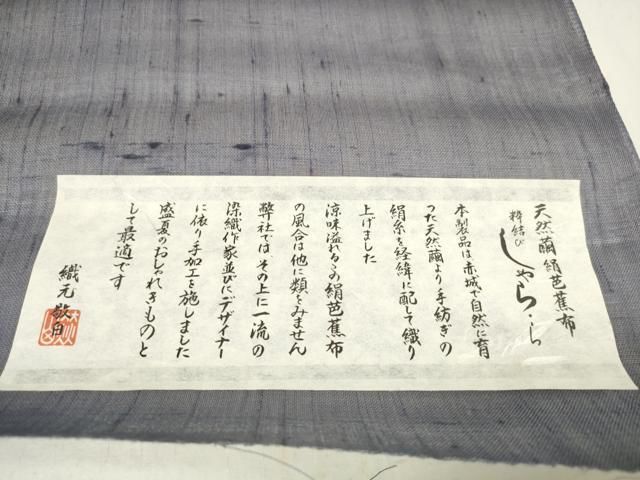 天然繭絹芭蕉布
粋結び
しゃら・ら
本製品は赤城で自然に育
った天然繭より手紡ぎの
絹糸を経緯に配して織り
上げました
涼味溢れるこの絹芭蕉布
の風合は他に類をみません
弊社ではその上に一流の
染織作家並びにデザイナー
に依り手加工を施しました
盛夏のおしゃれきものと
して最適です
織元敬白